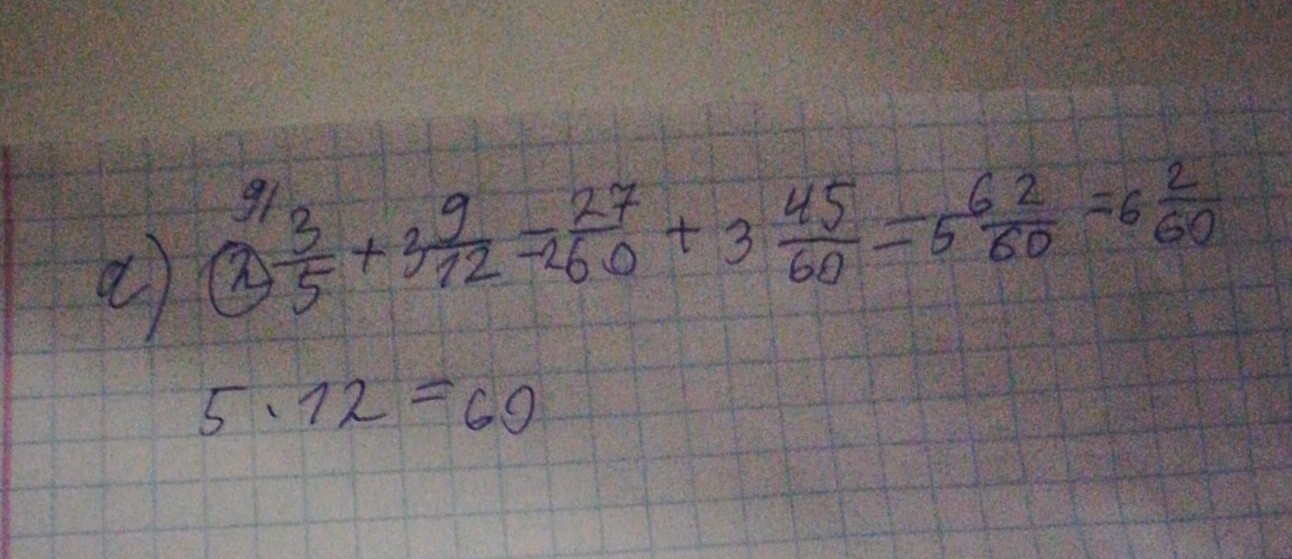 9/
a) 2 3/5 + 3 9/12 = 2 27/60 + 3 45/60 = 5 62/60 = 6 2/60
5 · 12 = 60